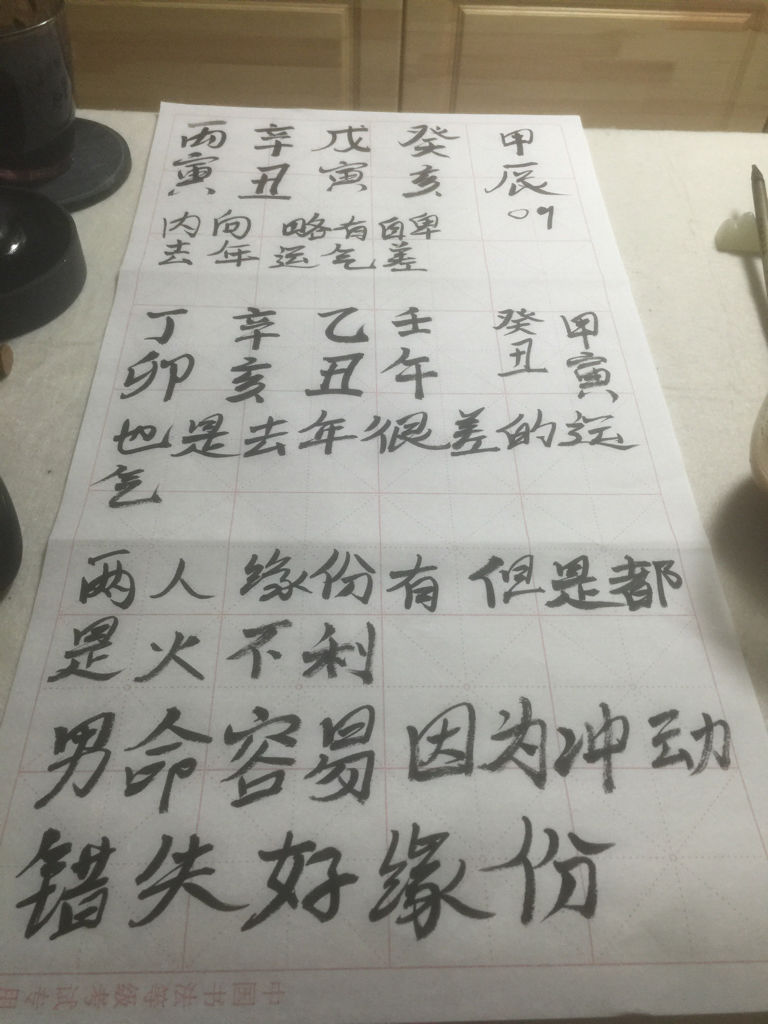 丙 辛 戊 癸 甲
寅 丑 寅 亥 辰
09
内向 略有自卑
去年运气差
丁 辛 乙 壬 癸 甲
卯 亥 丑 午 丑 寅
也是去年很差的运
气
两人 缘份有 但是都
是火不利
男命容易因为冲动
错失好缘份
中国书法等级考试专用